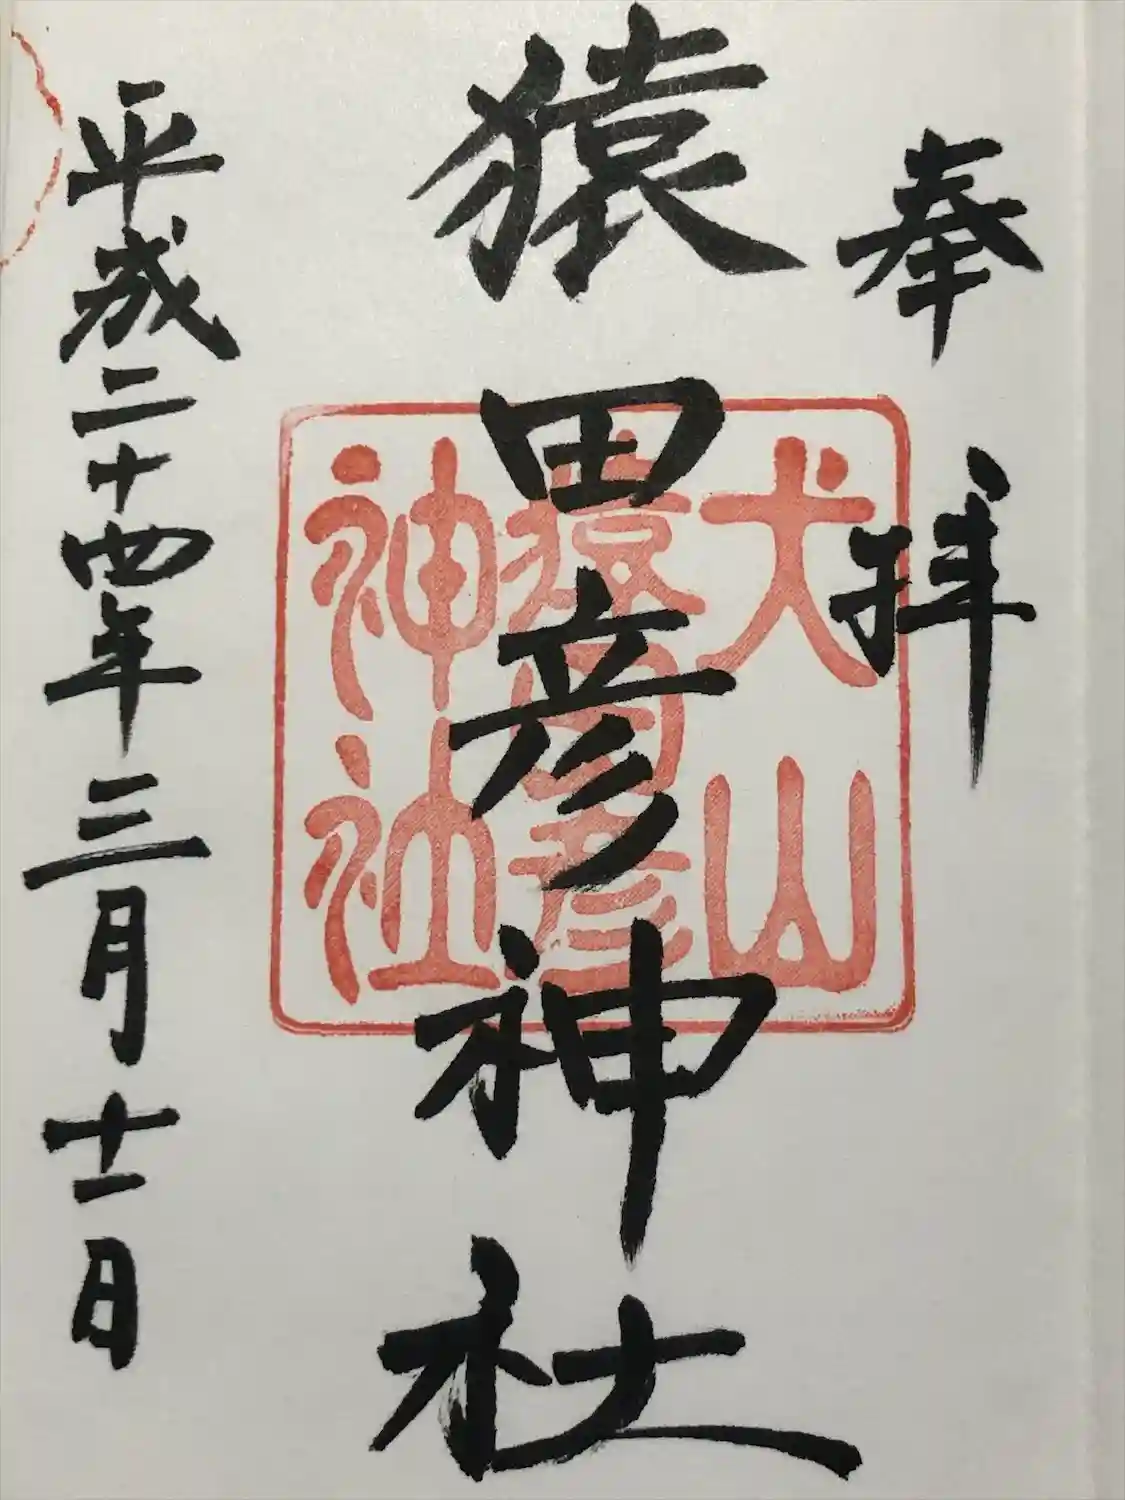 奉拝
猿田彦神社
犬山
猿田彦
神社
平成二十四年三月十一日